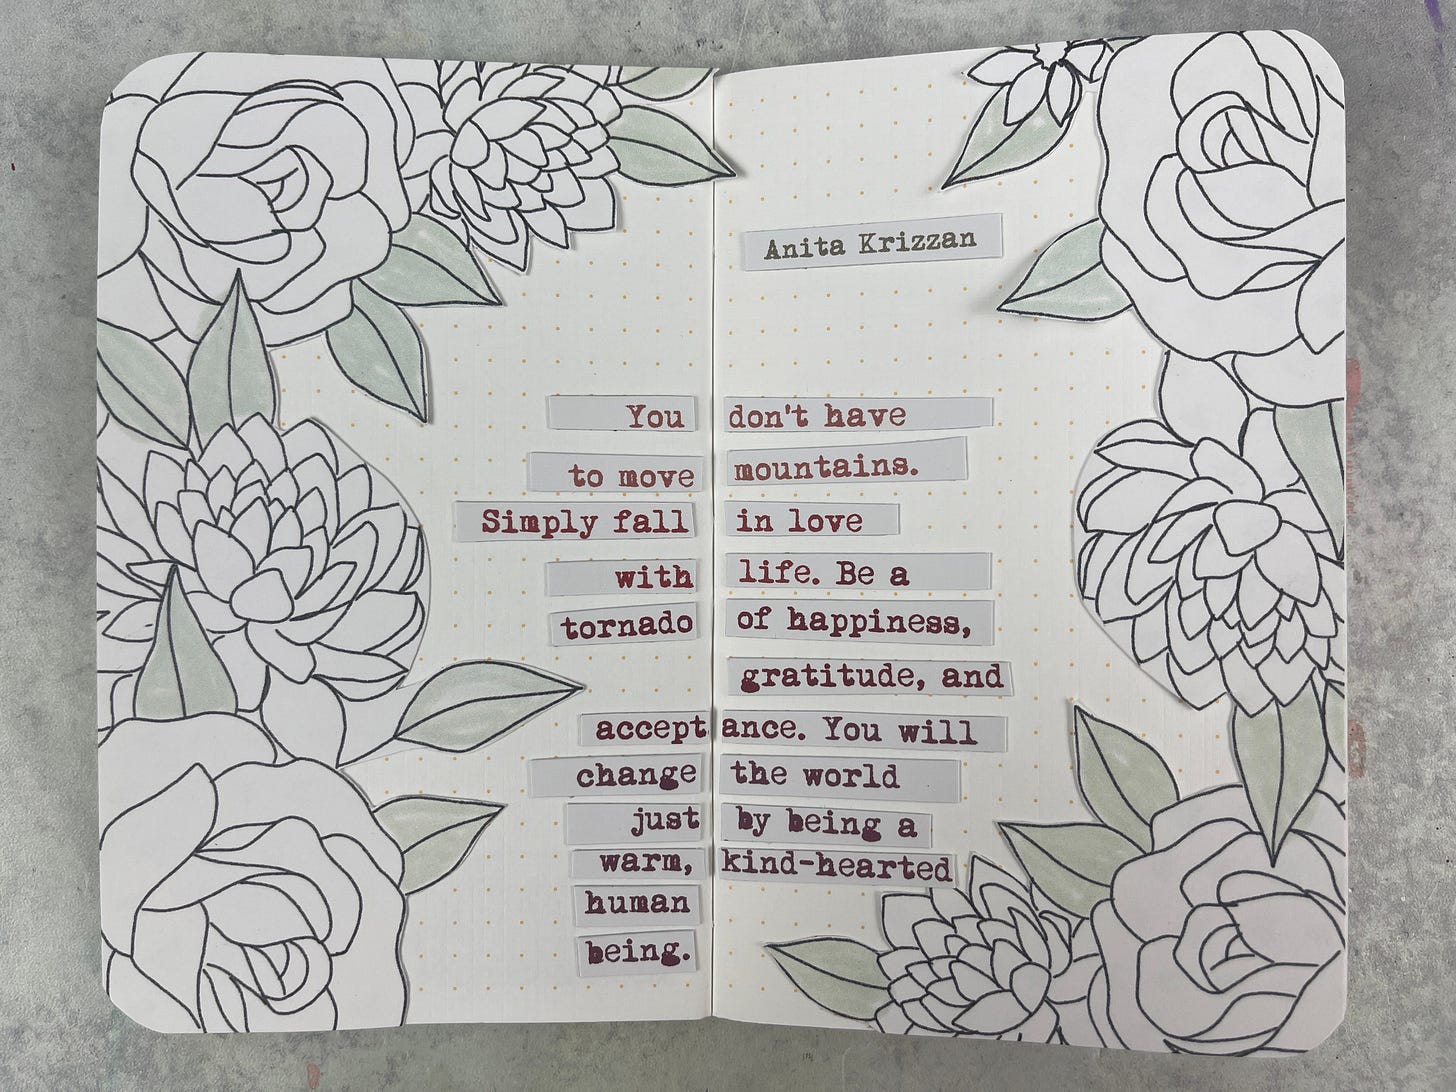 Anita Krizzan
You don't have
to move mountains.
Simply fall in love
with life. Be a
tornado of happiness,
gratitude, and
acceptance. You will
change the world
just by being a
warm, kind-hearted
human
being.